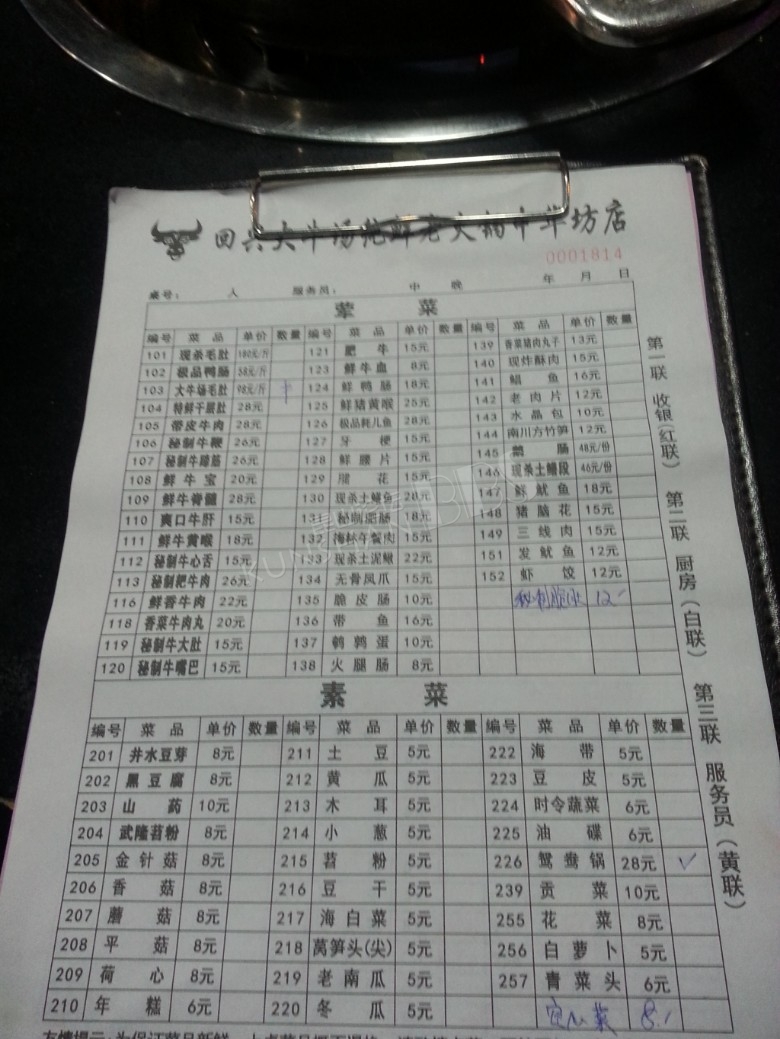 回兴大牛场鲜老火锅中华坊店
0001814
桌号: 人 服务员: 中 晚 年 月 日
荤 菜
编号 菜品 单价 数量 编号 菜品 单价 数量 编号 菜品 单价 数量
101 现杀毛肚 180元/斤 121 肥牛 15元 139 香菜猪肉丸子 13元
102 极品鸭肠 58元/斤 123 鲜牛血 8元 140 现炸酥肉 15元
103 大牛场毛肚 98元/斤 124 鲜鸭肠 18元 141 鲳鱼 16元
104 特鲜千层肚 28元 125 鲜猪黄喉 25元 142 老肉片 12元
105 带皮牛肉 28元 126 极品耗儿鱼 28元 143 水晶包 10元
106 秘制牛鞭 26元 127 牙梗 15元 144 南川方竹笋 12元
107 秘制牛蹄筋 26元 128 鲜腰片 15元 145 鹅肠 48元/份
108 鲜牛宝 20元 129 腰花 15元 146 现杀土鳝段 46元/份
109 鲜牛脊髓 28元 130 现杀土鳝鱼 28元 147 鲜鱿鱼 18元
110 爽口牛肝 15元 131 秘制肥肠 18元 148 猪脑花 15元
111 鲜牛黄喉 18元 132 梅林午餐肉 15元 149 三线肉 15元
112 秘制牛心舌 15元 133 现杀土泥鳅 22元 151 发鱿鱼 12元
113 秘制耙牛肉 26元 134 无骨凤爪 15元 152 虾饺 12元
116 鲜香牛肉 22元 135 脆皮肠 10元 秘制 12
118 香菜牛肉丸 20元 136 带鱼 16元
119 秘制牛大肚 15元 137 鹌鹑蛋 10元
120 秘制牛嘴巴 15元 138 火腿肠 8元
素 菜
编号 菜品 单价 数量 编号 菜品 单价 数量 编号 菜品 单价 数量
201 井水豆芽 8元 211 土豆 5元 222 海带 5元
202 黑豆腐 8元 212 黄瓜 5元 223 豆皮 5元
203 山药 10元 213 木耳 5元 224 时令蔬菜 6元
204 武隆苕粉 8元 214 小葱 5元 225 油碟 6元
205 金针菇 8元 215 苕粉 5元 226 鸳鸯锅 28元 ✓
206 香菇 8元 216 豆干 5元 239 贡菜 10元
207 蘑菇 8元 217 海白菜 5元 255 花菜 8元
208 平菇 8元 218 莴笋头(尖) 5元 256 白萝卜 5元
209 荷心 8元 219 老南瓜 5元 257 青菜头 6元
210 年糕 6元 220 冬瓜 5元 空心菜 8
第一联 收银(红联) 第二联 厨房(白联) 第三联 服务员(黄联)